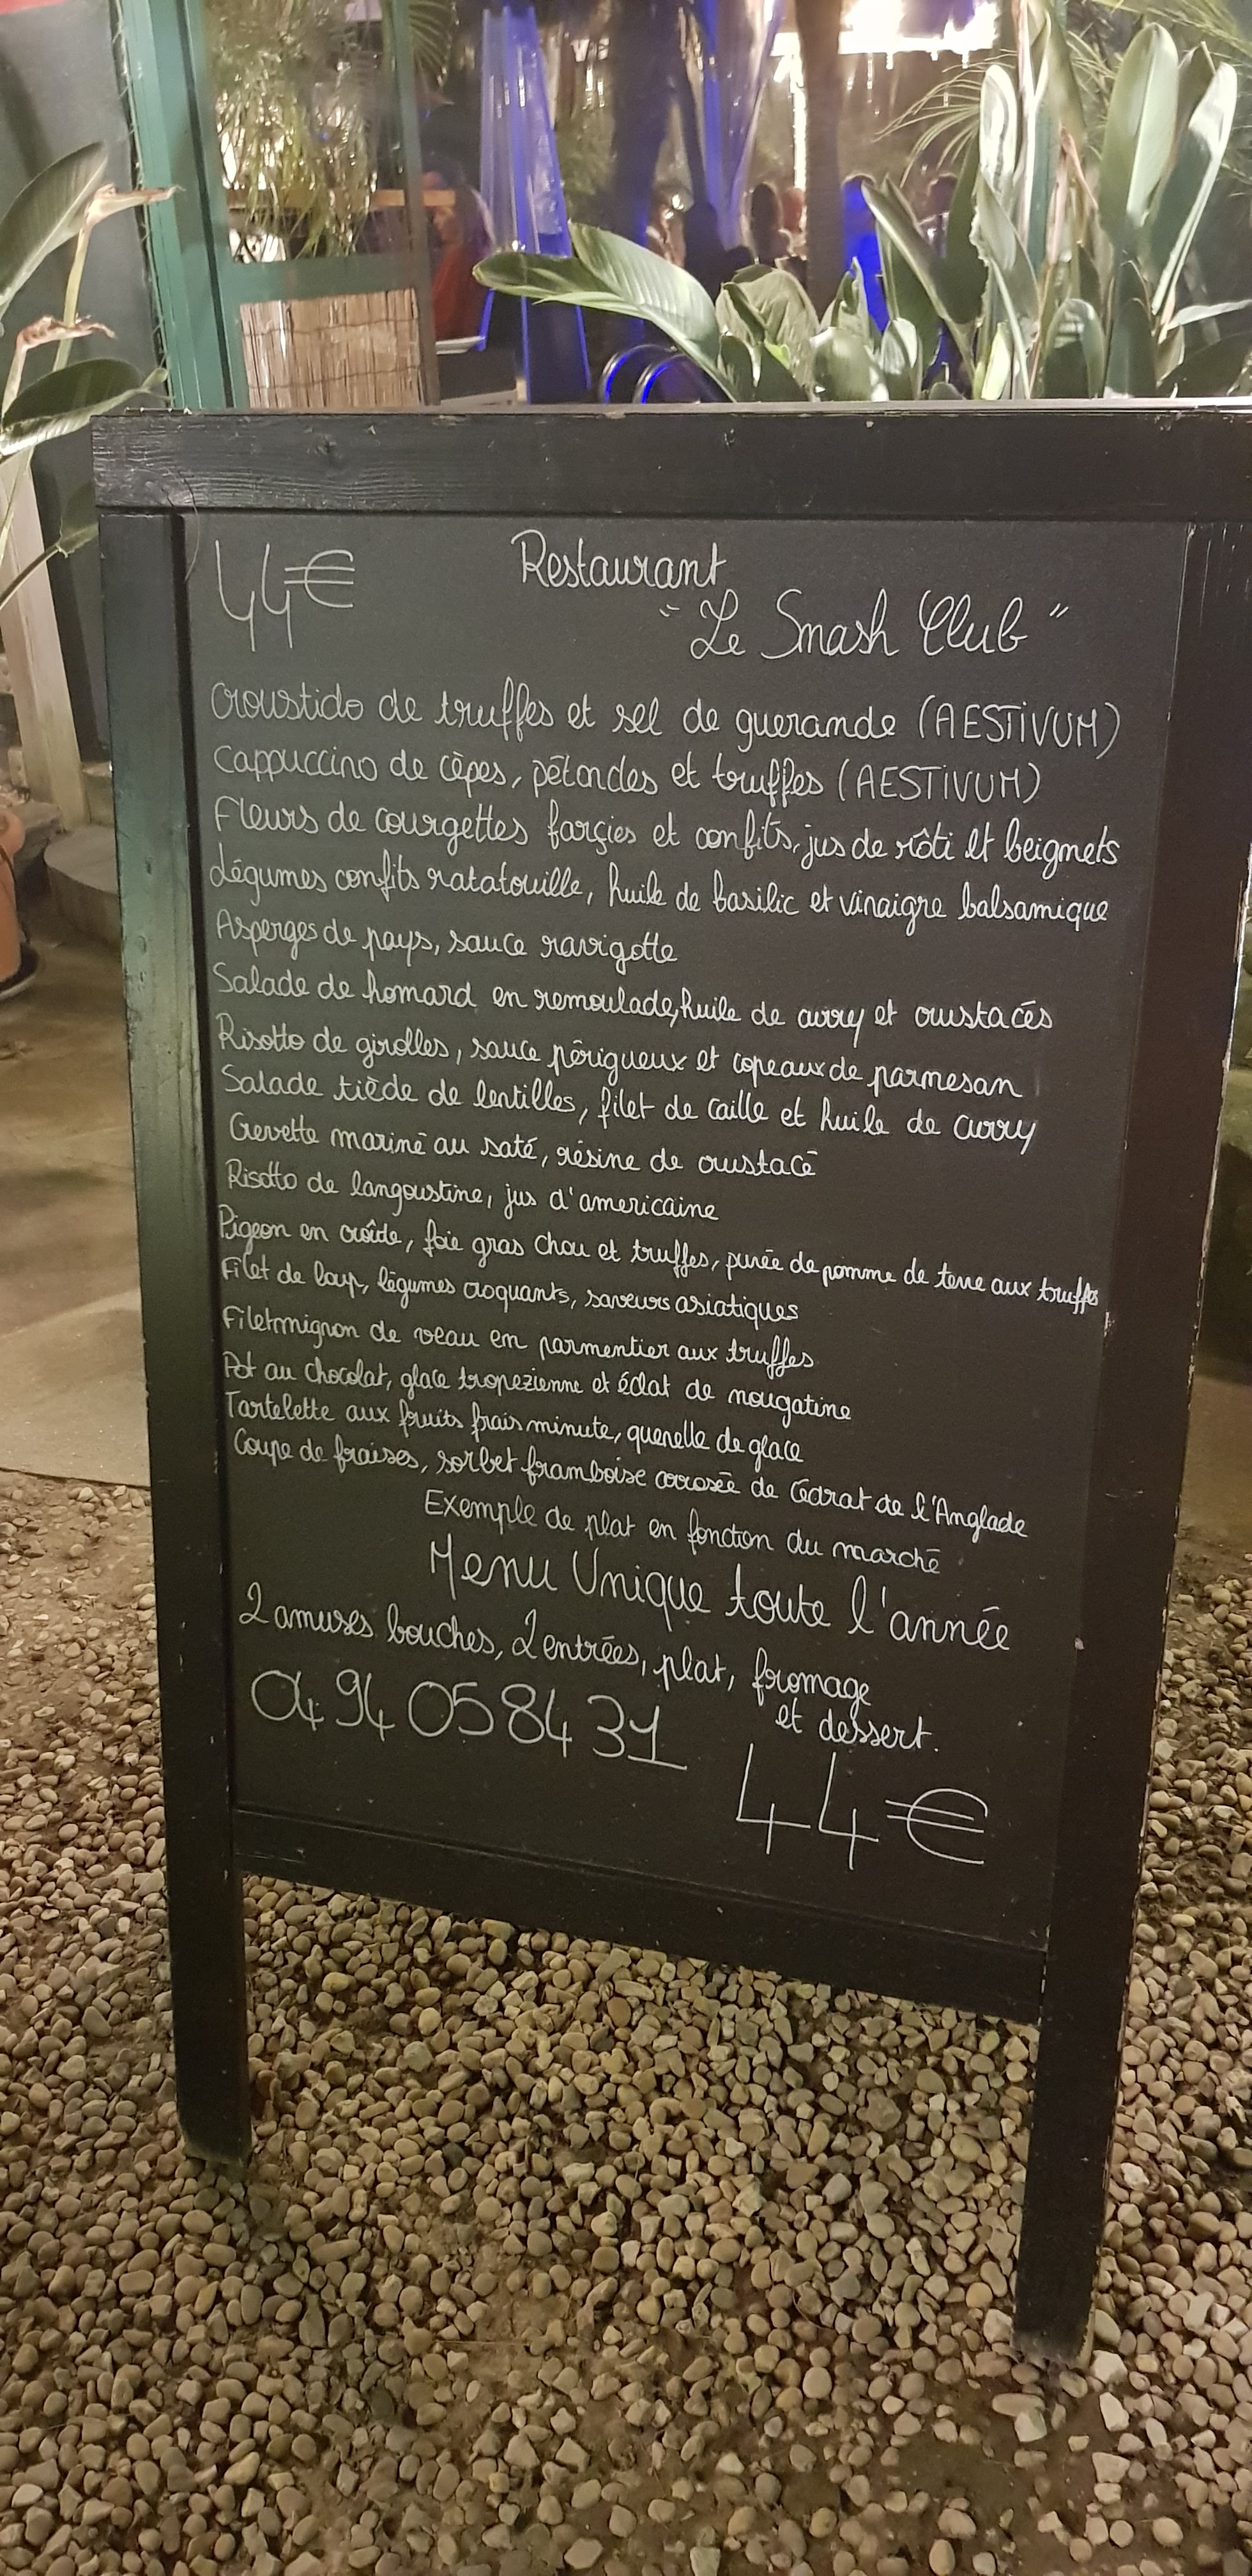 44€
Restaurant
"Le Smash Club"
Croustido de truffes et sel de guerande (AESTiVUM)
Cappuccino de cèpes, pétondes et truffes (AESTiVUM)
Fleurs de courgettes farçies et confits, jus de rôti et beignets
Légumes confits ratatouille, huile de basilic et vinaigre balsamique
Asperges de pays, sauce ravigotte
Salade de homard en remoulade, huile de curry et crustacés
Risotto de girolles, sauce périgueux et copeaux de parmesan
Salade tiède de lentilles, filet de caille et huile de curry
Crevette mariné au saté, résine de crustacé
Risotto de langoustine, jus d'americaine
Pigeon en croûte, foie gras chou et truffes, purée de pomme de terre aux truffes
Filet de loup, légumes croquants, saveurs asiatiques
Filet mignon de veau en parmentier aux truffes
Pot au chocolat, glace tropezienne et éclat de nougatine
Tartelette aux fruits frais minute, quenelle de glace
Coupe de fraises, sorbet framboise arrosée de Cédrat de l'Anglade
Exemple de plat en fonction du marché
Menu Unique toute l'année
2 amuses bouches, 2 entrées, plat, fromage
et dessert.
04 94 05 84 31
44€